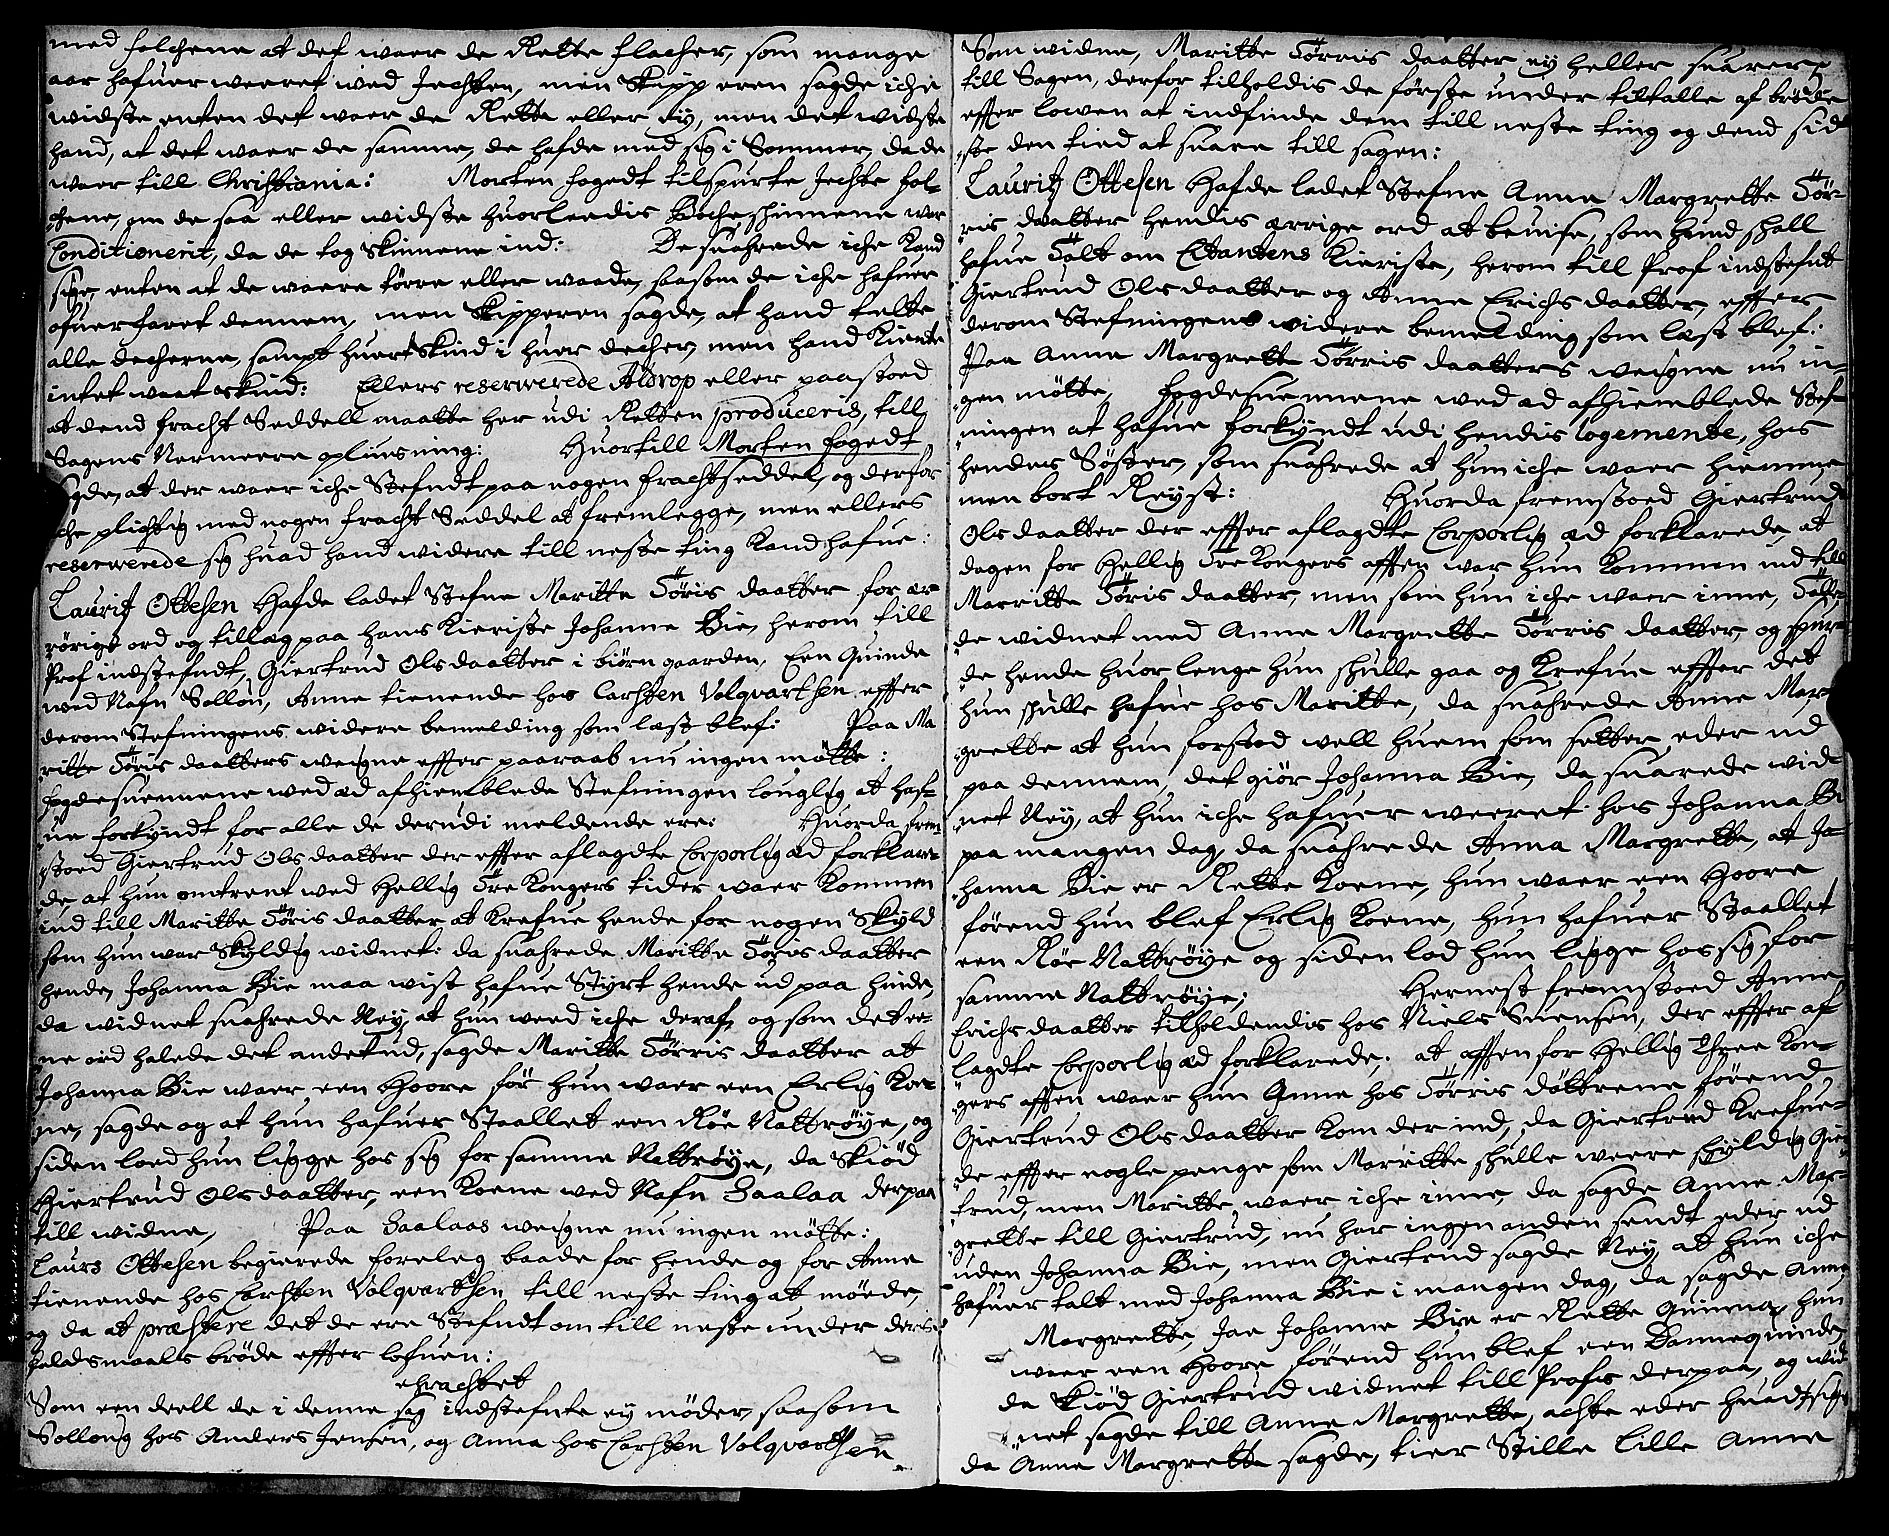 med folchene at det waer de Rette flacher, som mange
aar hafuer weeret wed Jechten, men Skipperen sagde iche
widste enten det waer de Rette eller ey, men det widste
hand, at det waer de samme, de hafde med sig i Sommer, da de
waer till Christiania: Morten fogedt tilspurte Jechte fol-
chene, om de saa eller widste huorleedis Bocheschinnene war
Conditionerit, da de tog Skinnene ind: De suahrede iche Kand
sige, enten at de waere törre eller waade, saasom de iche hafuer
ofuerfaret dennem, men Skipperen sagde, at hand talte
alle decherne, sampt huert Skind i huer decher, men hand Kiente
intet waat skind: Ellers reserwerede Aldrop eller paastoed
at dend fracht Seddell maatte her udi Retten produceris, till
Sagens Nermeere opliusning: Huortill Morten fogedt
sagde, at der waer iche Stefndt paa nogen frachtseddel, og derfor
iche plichtig med nogen fracht Seddel at fremlegge, men ellers
reserwerede sig huad hand widere till neste ting Kand hafue:
Lauritz Ottesen Hafde ladet Stefne Maritte Töris daatter for ær
rörige ord og tillæg paa hans Kieriste Johanna Bie, herom till
Prof indstefndt, Giertrud Olsdaatter i biörn gaarden, Een Quinde
wed Nafn Sollou, Anne tienende hos Carsten Volqvartsen, effter
derom Stefningens widere bemelding som læst blef: Paa Ma
ritte Töris daatters weigne effter paaraab nu ingen mötte:
fogdesuennene wed æd afhiemblede Stefningen louglig at haf-
ue forkyndt for alle de derudi meldende ere: Huorda frem
stoed Giertrud Olsdaatter der effter aflagdte Corporlig æd forklare-
de, at hun omtrent wed Hellig Tre Kongers tider waer Kommen
ind till Maritte Töris daatter at Krefue hende for nogen Skyld
som hun war Skyldig widnet: da suahrede Maritte Töris daatter
hende, Johanna Bie maa wist hafue Styrt hende ud paa hinde,
da widnet suahrede Ney, at hun weed iche deraf, og som det ee-
ne ord halede det andet ud, sagde Maritte Törris daatter at
Johanna Bie waer een Hoore för hun waer een Erlig Koe-
ne, sagde og at hun hafuer Staallet een Röe Nattröye, og
siden loed hun ligge hos sig for samme Nattröye, da Skiöd
Giertrud Olsdaatter, een Koene wed Nafn Saalaa derpaa
till widne, Paa Saalaas weigne nu ingen mötte:
Laurs Ottesen begierede foreleg baade for hende og for Anne
tienende hos Carsten Volqvartsen till neste ting at möede,
og da at præstere det de ere Stefndt om till neste under deris
faldsmaalls bröde effter lofuen:
Som een deell de i denne sag indstefnte ey möder, saasom
Sollou hos Anders Jensen, og Anna hos Carsten Volqvartsen
Som widne, Maritte Törris daatter ey heller suarer 5
till Sagen, derfor tilholdis de förste under tiltalle af bröde
effter lowen at indfinde dem till neste ting og dend sid
ste den tied at suare till sagen:
Lauritz Ottesen Hafde ladet Stefne Anna Margrette Tör-
ris daatter hendis ærrige ord at beuise, som hund skall
hafue Talt om Citantens Kieriste, herom till Prof indstefnt
Giertrud Olsdaatter og Anne Erichsdaatter, effter
derom Stefningens widere bemelding som læst blef:
Paa Anna Margrette Törris daatters weigne nu in-
gen mötte, fogdesuennene wed æd afhiemblede Stef-
ningen at hafue forkyndt udi hendis logemente, hos
hendes Söster, som suahrede at hun iche waer hiemme
men bort Reyst: Huorda fremstoed Giertrud
Olsdaatter der effter aflagdte Corporlig æd forklarede, at
dagen for Hellig Tre Kongers afften war hun Kommen ind till
Marritte Töris daatter, men som hun iche waer inne, Talle
de widnet med Anne Margrette Törris daatter, og spur-
de hende huor lenge hun skulle gaa og Krefue effter det
hun skulle hafue hos Maritte, da suahrede Anne Mar-
grette at hun forstod well huem som setter eder ud
paa dennem, det giör Johanna Bie, da suarede wid
net Ney, at hun iche hafuer weeret hos Johanna Bi
paa mangen dag, da suahrede Anna Margrette, at Jo-
hanna Bie er Rette Koene, hun waer een Hoore
förend hun blef Erlig Koene, hun hafuer Staallet
een Röe Nattröye og siden lod hun ligge hos sig for
samme Nattröye; Hernest fremstoed Anne
Erichsdaatter tilholdendis hos Niels Suensen, der effter af
lagdte Corporlig æd forklarede, at afften for Hellig Three Kon-
gers afften waer hun Anne hos Törris döttrene förend
Giertrud Olsdaatter Kom der ind, da Giertrud Krefue-
de effter nogle penge som Marritte skulle weere skyldig Gier
trud, men Maritte waer iche inne, da sagde Anne Mar-
grette till Giertrud, nu har ingen anden sendt eder ud
uden Johanna Bie, men Giertrud sagde Ney at hun iche
hafuer talt med Johanna Bie i mangen dag, da sagde Anne
Margrette, Jae Johanne Bie er Rette Quinna, hun
waer een Hoore förend hun blef een Dannequinde,
da Skiöd Giertrud widnet till Profs derpaa, og wid
net sagde till Anne Margrette, achte eder huad I sige
da Anne Margrette sagde, tier Stille lille Anne